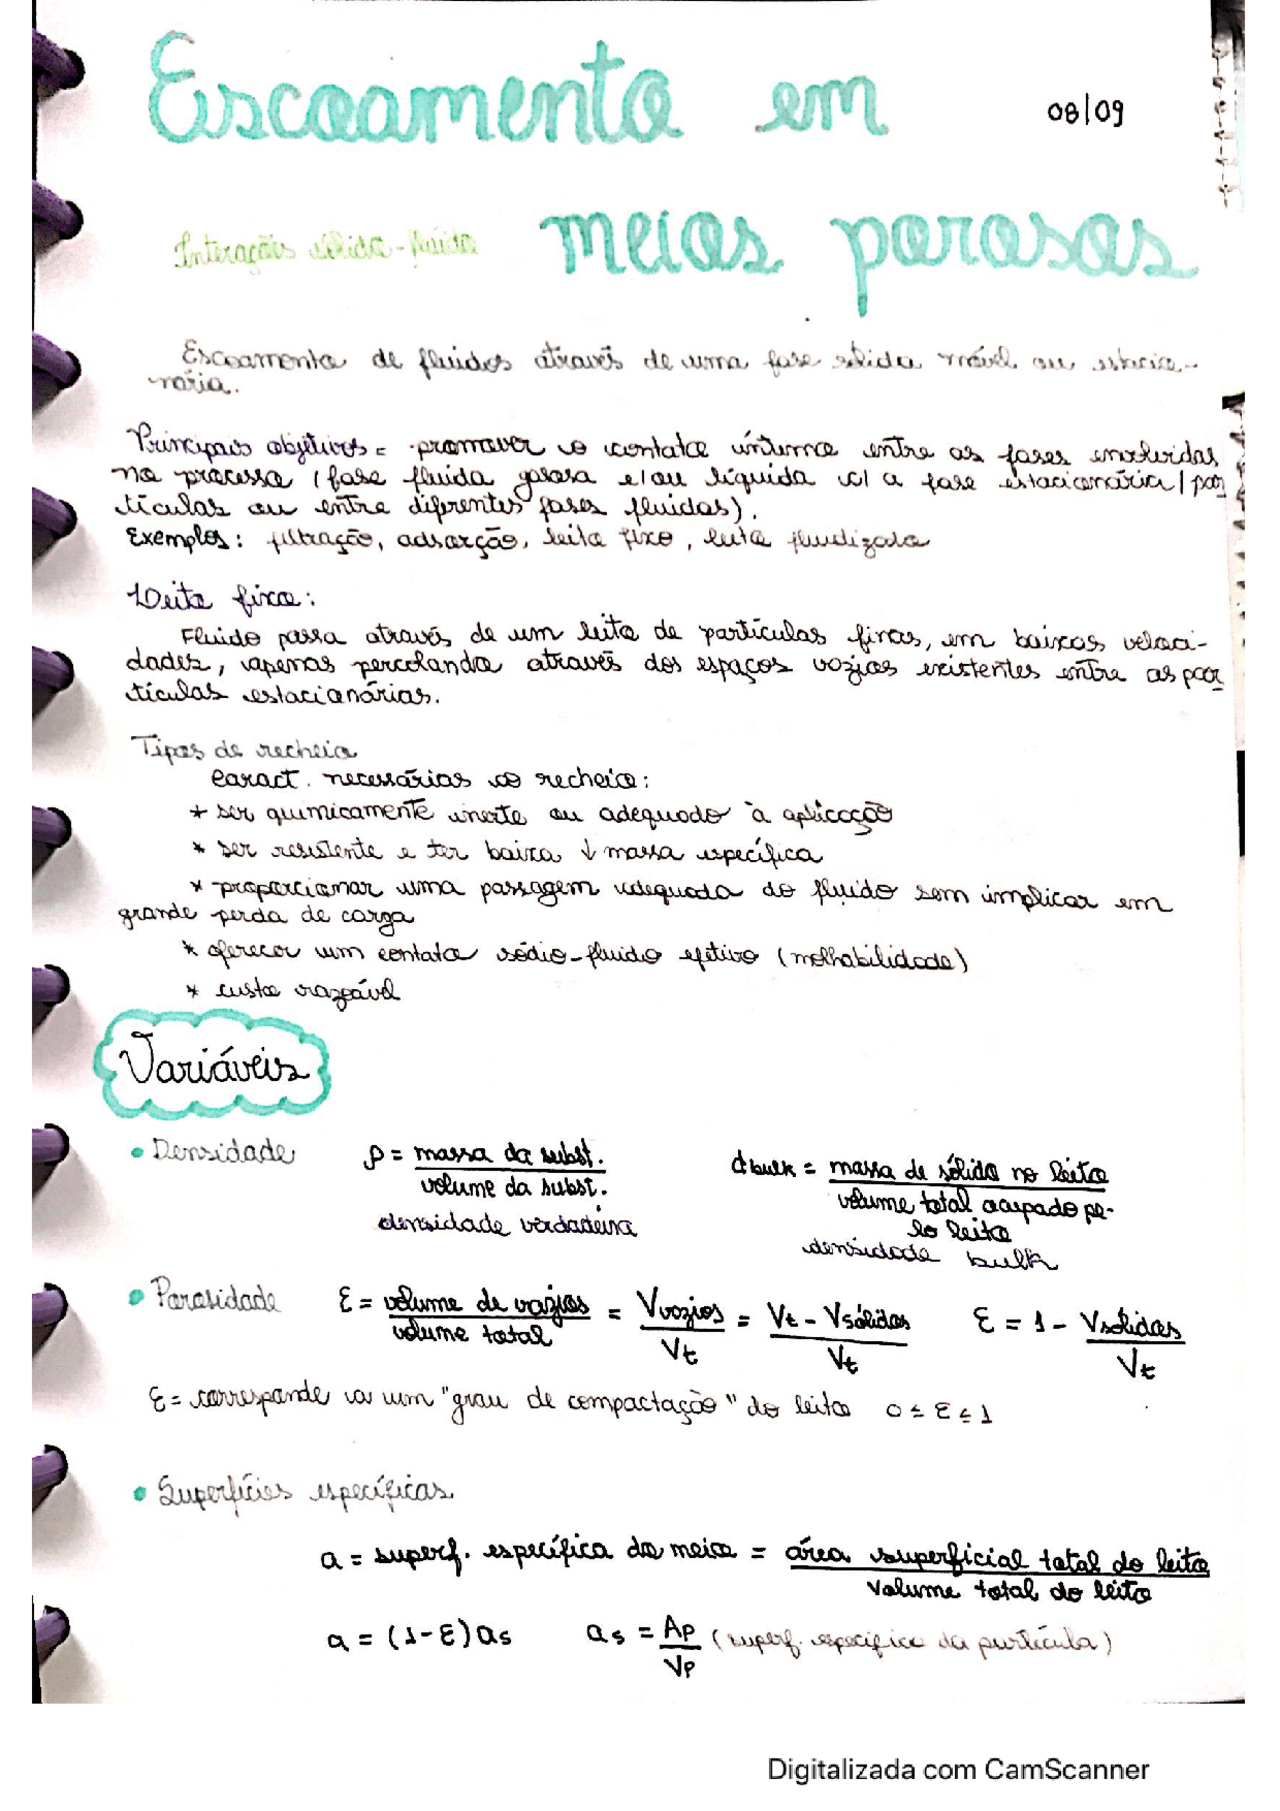 Escoamento em
08/09
Interações sólido-fluido
meios porosos
Escoamento de fluidos através de uma fase sólida móvel ou estacio-
nária.
Principais objetivos = promover o contato íntimo entre as fases envolvidas
no processo (fase fluida gasosa e/ou líquida c/ a fase estacionária / par
tículas ou entre diferentes fases fluidas).
Exemplos: filtração, adsorção, leito fixo, leito fluidizado
Leito fixo:
Fluido passa através de um leito de partículas fixas, em baixas veloci-
dades, apenas percolando através dos espaços vazios existentes entre as par
tículas estacionárias.
Tipos de recheio
Caract. necessárias ao recheio:
* ser quimicamente inerte ou adequado à aplicação
* ser resistente e ter baixa ↓ massa específica
* proporcionar uma passagem adequada do fluido sem implicar em
grande perda de carga
* oferecer um contato sódio-fluido efetivo (molhabilidade)
* custo razoável
Variáveis
• Densidade ρ = massa da subst. / volume da subst. dbulk = massa de sólido no leito / volume total ocupado pe-
lo leito
densidade verdadeira densidade bulk
• Porosidade ε = volume de vazios / volume total = Vvazios / Vt = Vt - Vsólidos / Vt ε = 1 - Vsólidos / Vt
ε = corresponde a um "grau de compactação" do leito 0 ≤ ε ≤ 1
• Superfícies específicas
a = superf. específica do meio = área superficial total do leito / volume total do leito
a = (1-ε)as as = Ap / Vp (superf. específica da partícula)
Digitalizada com CamScanner